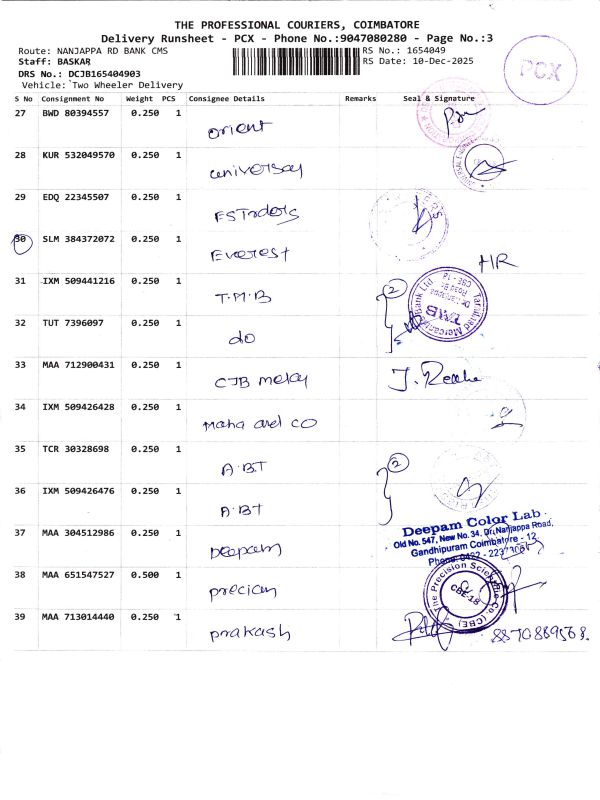 THE PROFESSIONAL COURIERS, COIMBATORE
Delivery Runsheet - PCX - Phone No.:9047080280 - Page No.:3
Route: NANJAPPA RD BANK CMS
RS No.: 1654049
Staff: BASKAR
RS Date: 10-Dec-2025
DRS No.: DCJB165404903
Vehicle: Two Wheeler Delivery
PCX
S No Consignment No Weight PCS Consignee Details Remarks Seal & Signature
27 BWD 80394557 0.250 1
Orient
28 KUR 532049570 0.250 1
universal
29 EDQ 22345507 0.250 1
ESTraders
30 SLM 384372072 0.250 1
Everest
HR
31 IXM 509441216 0.250 1
T.M.B
2
Tamilnad Mercantile Bank Ltd.
TMB
32 TUT 7396097 0.250 1
do
33 MAA 712900431 0.250 1
CJB
34 IXM 509426428 0.250 1
Maha and CO
35 TCR 30328698 0.250 1
A.BT
2
36 IXM 509426476 0.250 1
A.BT
37 MAA 304512986 0.250 1
Deepam
Deepam Color Lab.
Old No. 547, New No. 34, Dr. Nanjappa Road,
Gandhipuram Coimbatore - 12.
Phone: 0422 -
38 MAA 651547527 0.500 1
precian
The Precision Scientific Co (CBE)
CBE-18
39 MAA 713014440 0.250 1
prakash
8870869568.